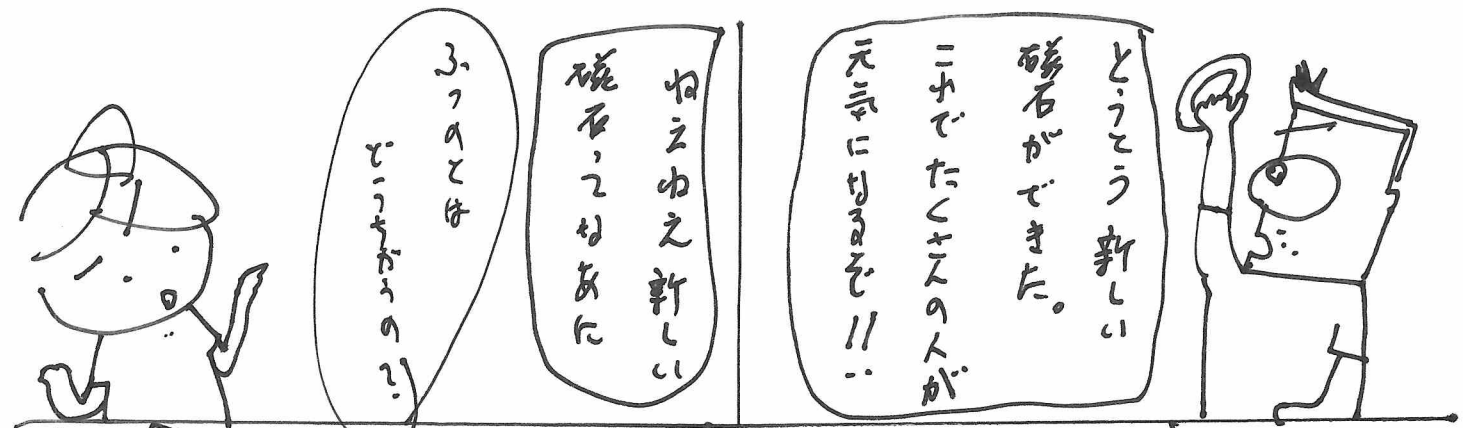 とうとう新しい
磁石ができた。
これでたくさんの人が
元気になるぞ!!
ねえねえ新しい
磁石ってなあに
ふつのとは
どうちがうの?